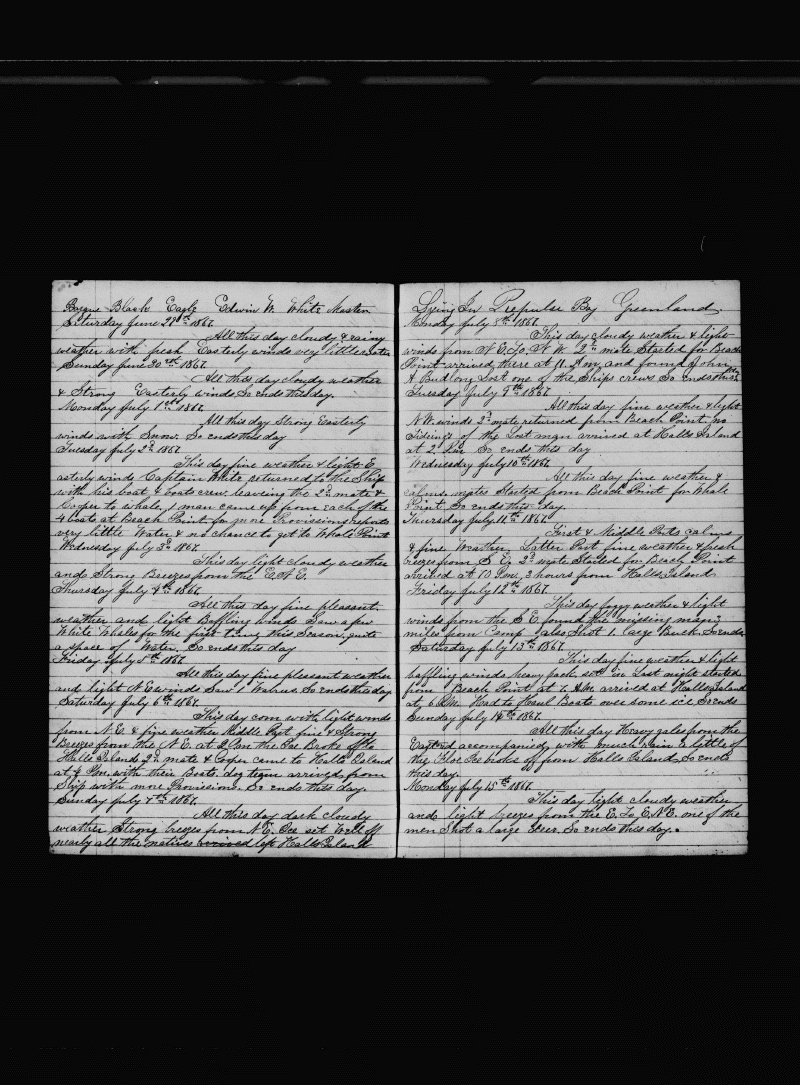 Barque Black Eagle Edwin W. White Master
Saturday June 29th 1867.
All this day cloudy & rainy
weather with fresh Easterly winds very little water
Sunday June 30th 1867.
All this day cloudy weather
& Strong Easterly winds, So ends this day.
Monday July 1st 1867.
All this day Strong Easterly
winds with Snow. So ends this day
Tuesday July 2d 1867.
This day fine weather & light E
asterly winds Captain White returned to the Ship
with his boat & boats crew leaveing the 2d mate &
Cooper to whale, 1 man came up from each of the
4 boats at Beach Point for more Provisions reports
very little Water & no chance to get to Whale Point
Wednesday July 3d 1867.
This day light cloudy weather
and Strong Breezes from the E.N.E.
Thursday July 4th 1867.
All this day fine pleasant
weather and light Baffling winds Saw a few
White Whales for the first time this Season, quite
a space of Water. So ends this day
Friday July 5th 1867.
All this day fine pleasant weather
and light N E winds Saw 1 Walrus. So ends this day
Saturday July 6th 1867.
This day com with light winds
from N.E. & fine weather Middle Part fine & Strong
Breezes from the N.E. at 2 Pm the Ice Broke off to
Halls Island 2d mate & Cooper came to Halls Island
at 4 Pm. with their Boats. dog team arrived from
Ship with more Provisions. So ends this day
Sunday July 7th 1867.
All this day dark cloudy
weather Strong breezes from N.E. Ice set Well off
nearly all the natives left Halls Island
Lying In Repulse Bay Greenland
Monday July 8th 1867.
This day cloudy weather & light
winds from N.E. To. N W. 2d mate Started for Beach
Point arrived there at 11. A m, and found John
A Budlong Lost one of the Ships crews So ends this
Tuesday July 9th 1867
All this day fine weather & light
N.W. winds 2d mate returned from Beach Point no
tideings of the Lost man arrived at Halls Island
at 2 Am So ends this day
Wednesday July 10th 1867
All this day fine weather &
calms, mates Started from Beach Point for Whale
Point So ends this day.
Thursday July 11th 1867.
First & Middle Parts calms
& fine Weather, Latter Part fine weather & fresh
breezes from S E, 2d mate Started for Beach Point
arrived at 10 Pm, 3 hours from Halls Island
Friday July 12th 1867.
This day foggy weather & light
winds from the S E found the missing man
miles from Camp also Shot 1 large Buck. So ends
Saturday July 13th 1867.
This day fine weather & light
baffling winds heavy pack set in Last night started
from Beach Point at A.M. arrived at Halls Island
at 6 P.M. Had to Haul Boats over some ice So ends
Sunday July 14th 1867.
All this day Heavy gales from the
Eastard accompanied with much rain a little of
the Floe Ice broke off from Halls Island, So ends
this day.
Monday July 15th 1867.
This day light cloudy weather
and light breezes from the E. To. E.N.E. one of the
men Shot a large deer. So ends this day.